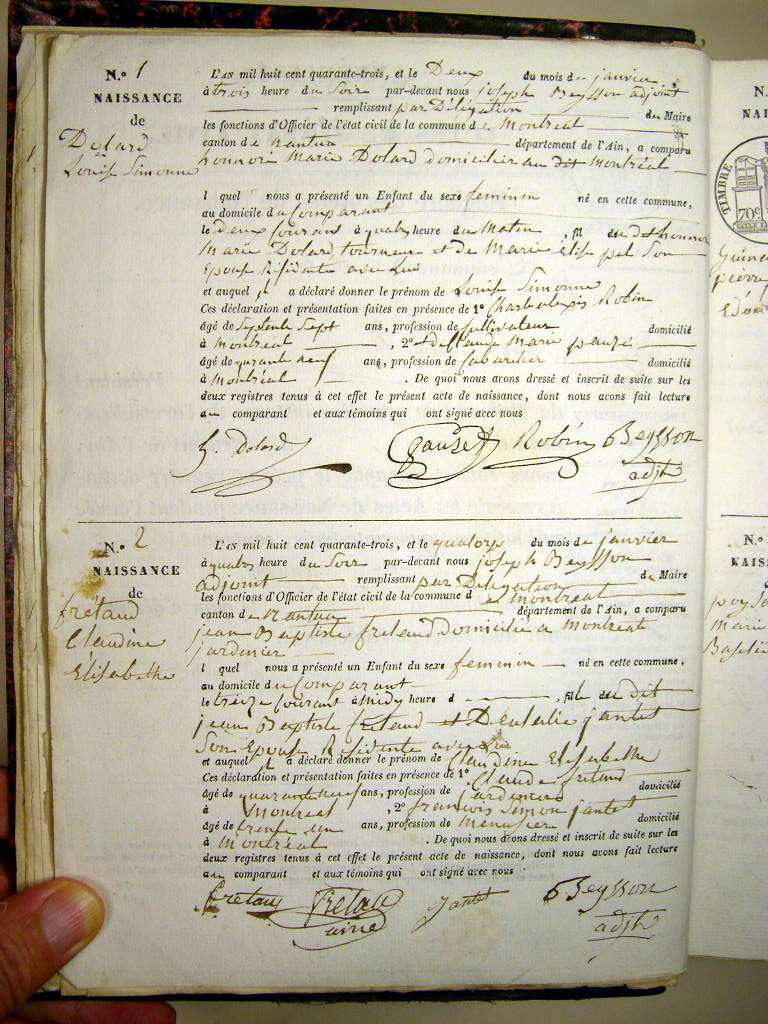 N.o 1
NAISSANCE
de
Dolard
Louise Simonne
L'AN mil huit cent quarante-trois, et le Deux du mois de janvier
à trois heure du Soir par-devant nous joseph Beysson adjoint
remplissant par Délégation du Maire
les fonctions d'Officier de l'état civil de la commune de Montréal
canton de nantua département de l'Ain, a comparu
honnoré Marie Dolard domicilier au dit Montréal
l quel nous a présenté un Enfant du sexe feminin né en cette commune,
au domicile du Comparant
le deux Courant à quatre heure du Matin, fil du dit honnoré
Marie Dolard, tourneur et de Marie élise pel Son
Epouse Résidente avec Lui
et auquel il a déclaré donner le prénom de Louise Simonne
Ces déclaration et présentation faites en présence de 1° Charle alexis Robin
âgé de Septente Sept ans, profession de Cultivateur domicilié
à Montréal, 2° Marie pauzé
âgé de quarante neuf ans, profession de domicilié
à Montréal. De quoi nous avons dressé et inscrit de suite sur les
deux registres tenus à cet effet le présent acte de naissance, dont nous avons fait lecture
au comparant et aux témoins qui ont signé avec nous
h. Dolard Pauzet Robin Beysson
adjt
N.o 2
NAISSANCE
de
frétaud
Claudine
Elisabethe
L'AN mil huit cent quarante-trois, et le quatorze du mois de janvier
à quatre heure du Soir par-devant nous joseph Beysson
adjoint remplissant par Délégation du Maire
les fonctions d'Officier de l'état civil de la commune de Montréal
canton de Nantua département de l'Ain, a comparu
jean Baptiste fretaud domicilié a Montréal
jardinier
l quel nous a présenté un Enfant du sexe feminin né en cette commune,
au domicile du Comparant
le treize Courant à midy heure d, fille du dit
jean Baptiste fretaud et D'eulalie jantet
Son Epouse Résidente avec Lui
et auquel il a déclaré donner le prénom de Claudine Elisabethe
Ces déclaration et présentation faites en présence de 1° Claude fretaud
âgé de quarante neuf ans, profession de jardinier domicilié
à Montréal, 2° françois Simon jantet
âgé de trente un ans, profession de Menusier domicilié
à Montréal. De quoi nous avons dressé et inscrit de suite sur les
deux registres tenus à cet effet le présent acte de naissance, dont nous avons fait lecture
au comparant et aux témoins qui ont signé avec nous
fretaud fretaud Jantet Beysson
ainé adjt
N.
NAIS
TIMBRE
70c
pierre
N.
NAIS
Marie